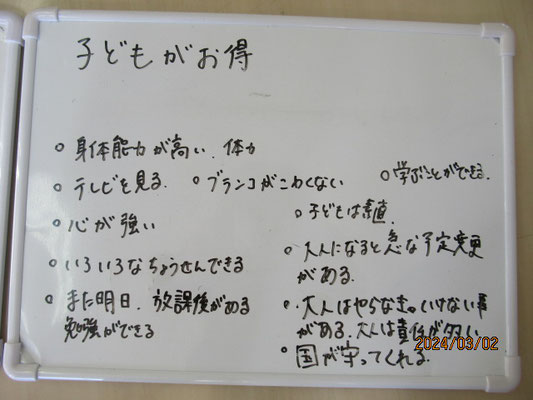 子どもがお得
○ 身体能力が高い．体力
○ テレビを見る．
○ ブランコがこわくない
○ 学ぶことができる．
○ 心が強い
○ 子どもは素直．
○ いろいろなちょうせんできる
・ 大人になると急な予定変更
がある．
○ また明日．放課後がある
勉強ができる
・ 大人はやらなきゃいけない事
がある．大人は責任が多い
○ 国が守ってくれる．
2024/03/02